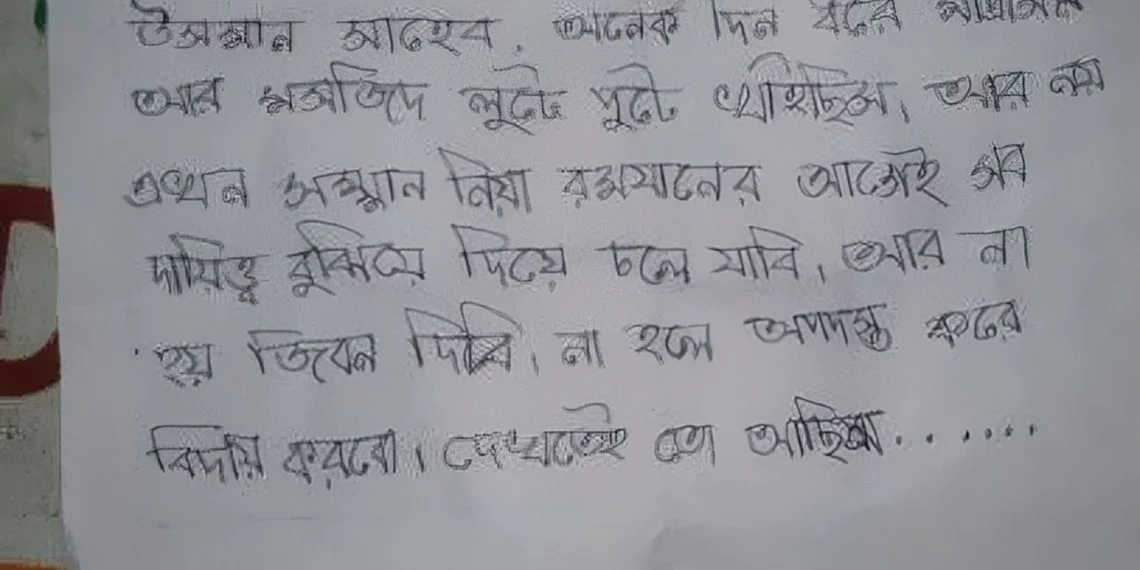 উসমান সাহেব, অনেক দিন ধরে মাদ্রাসা
আর মসজিদে লুটে পুটে খাইছিস, আর নয়
এখন সম্মান নিয়া রমযানের আগেই সব
দায়িত্ব বুঝিয়ে দিয়ে চলে যাবি, আর না
হয় জিবন দিবি, না হলে অপদস্ত করে
বিদায় করবো। দেখতেই তো আছিস.......